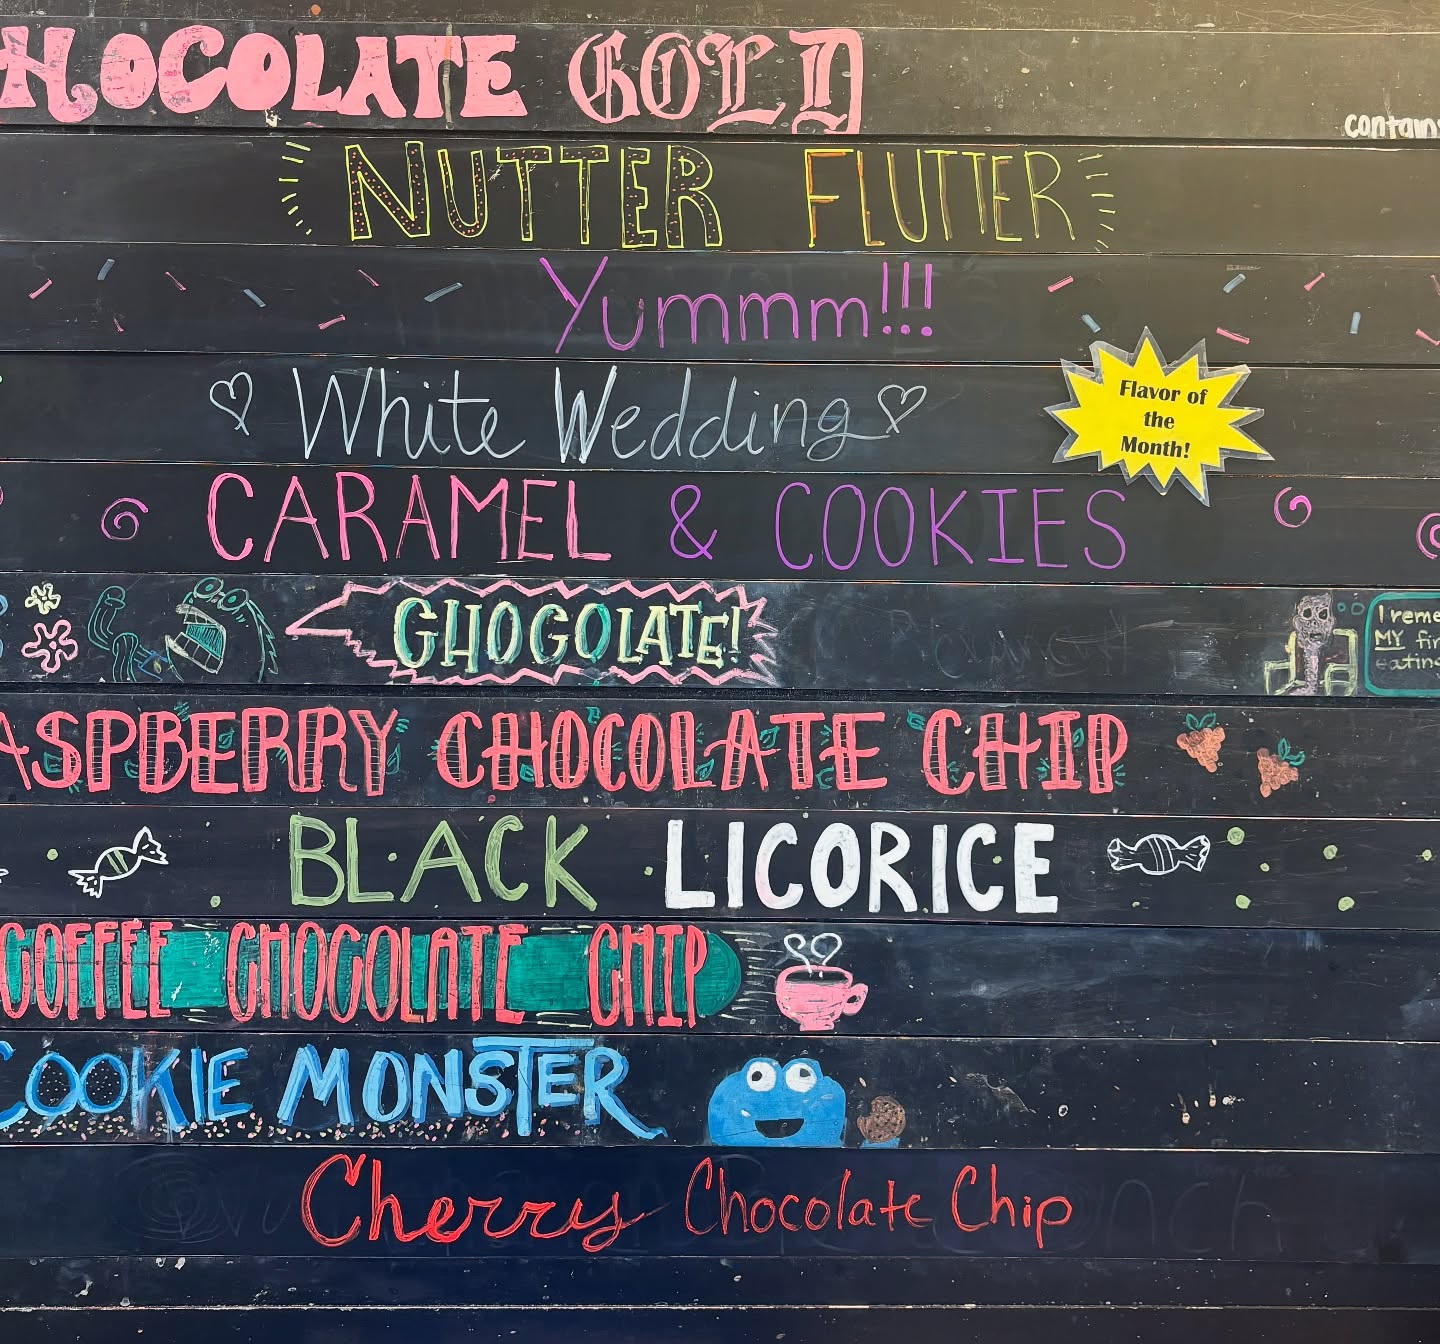 HOCOLATE GOLD
contains
NUTTER FLUTTER
Yummm!!!
White Wedding
Flavor of
the
Month!
CARAMEL & COOKIES
CHOCOLATE!
I reme
MY fir
eating
ASPBERRY CHOCOLATE CHIP
BLACK LICORICE
COFFEE CHOCOLATE CHIP
COOKIE MONSTER
Cherry Chocolate Chip